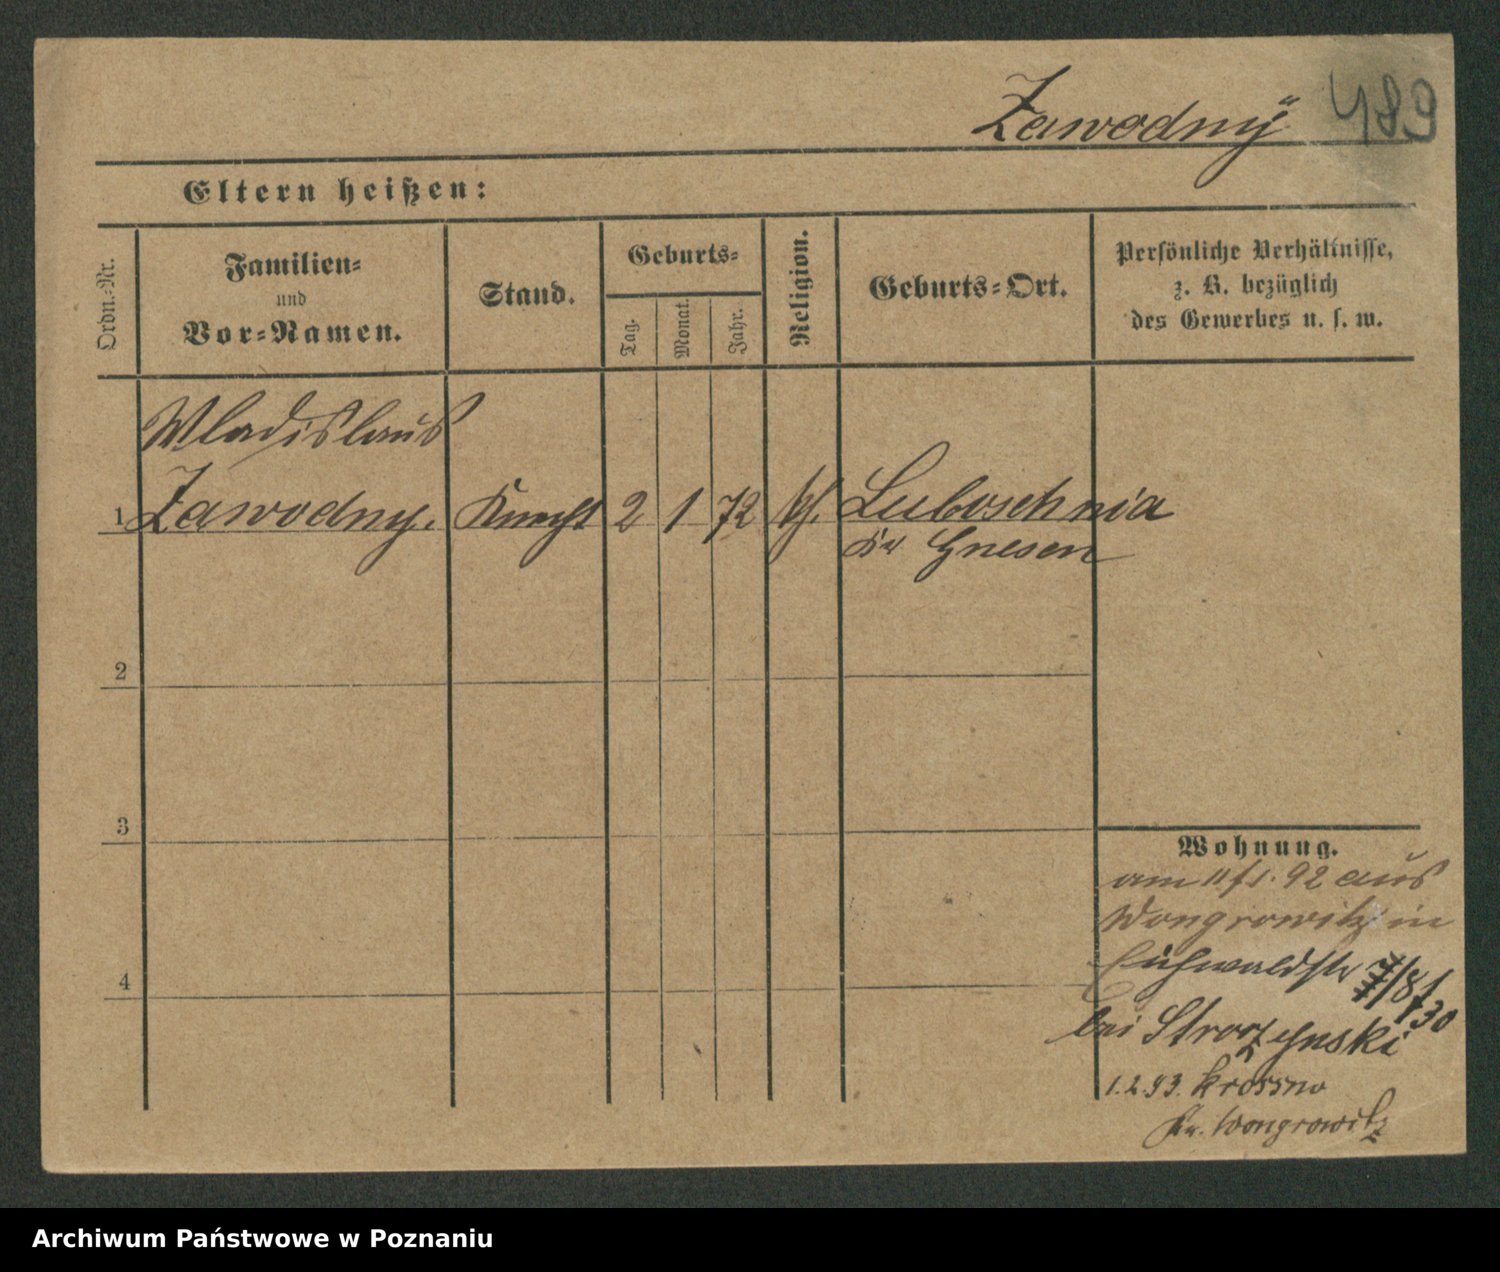 Zawodnÿ 489
Eltern heißen:
Ordn.-Nr.
Familien-
und
Vor-Namen.
Stand.
Geburts-
Tag.
Monat.
Jahr.
Religion.
Geburts-Ort.
Persönliche Verhältnisse,
z. B. bezüglich
des Gewerbes u. s. w.
Wladislaus
1 Zawodny. Knecht 2 1 72 kh. Luboschnia
Kr Gnesen
2
3
4
Wohnung.
am 11/1. 92 aus
Wongrowitz in
bei
1.2.93. Krossno
Kr. Wongrowitz
Archiwum Państwowe w Poznaniu